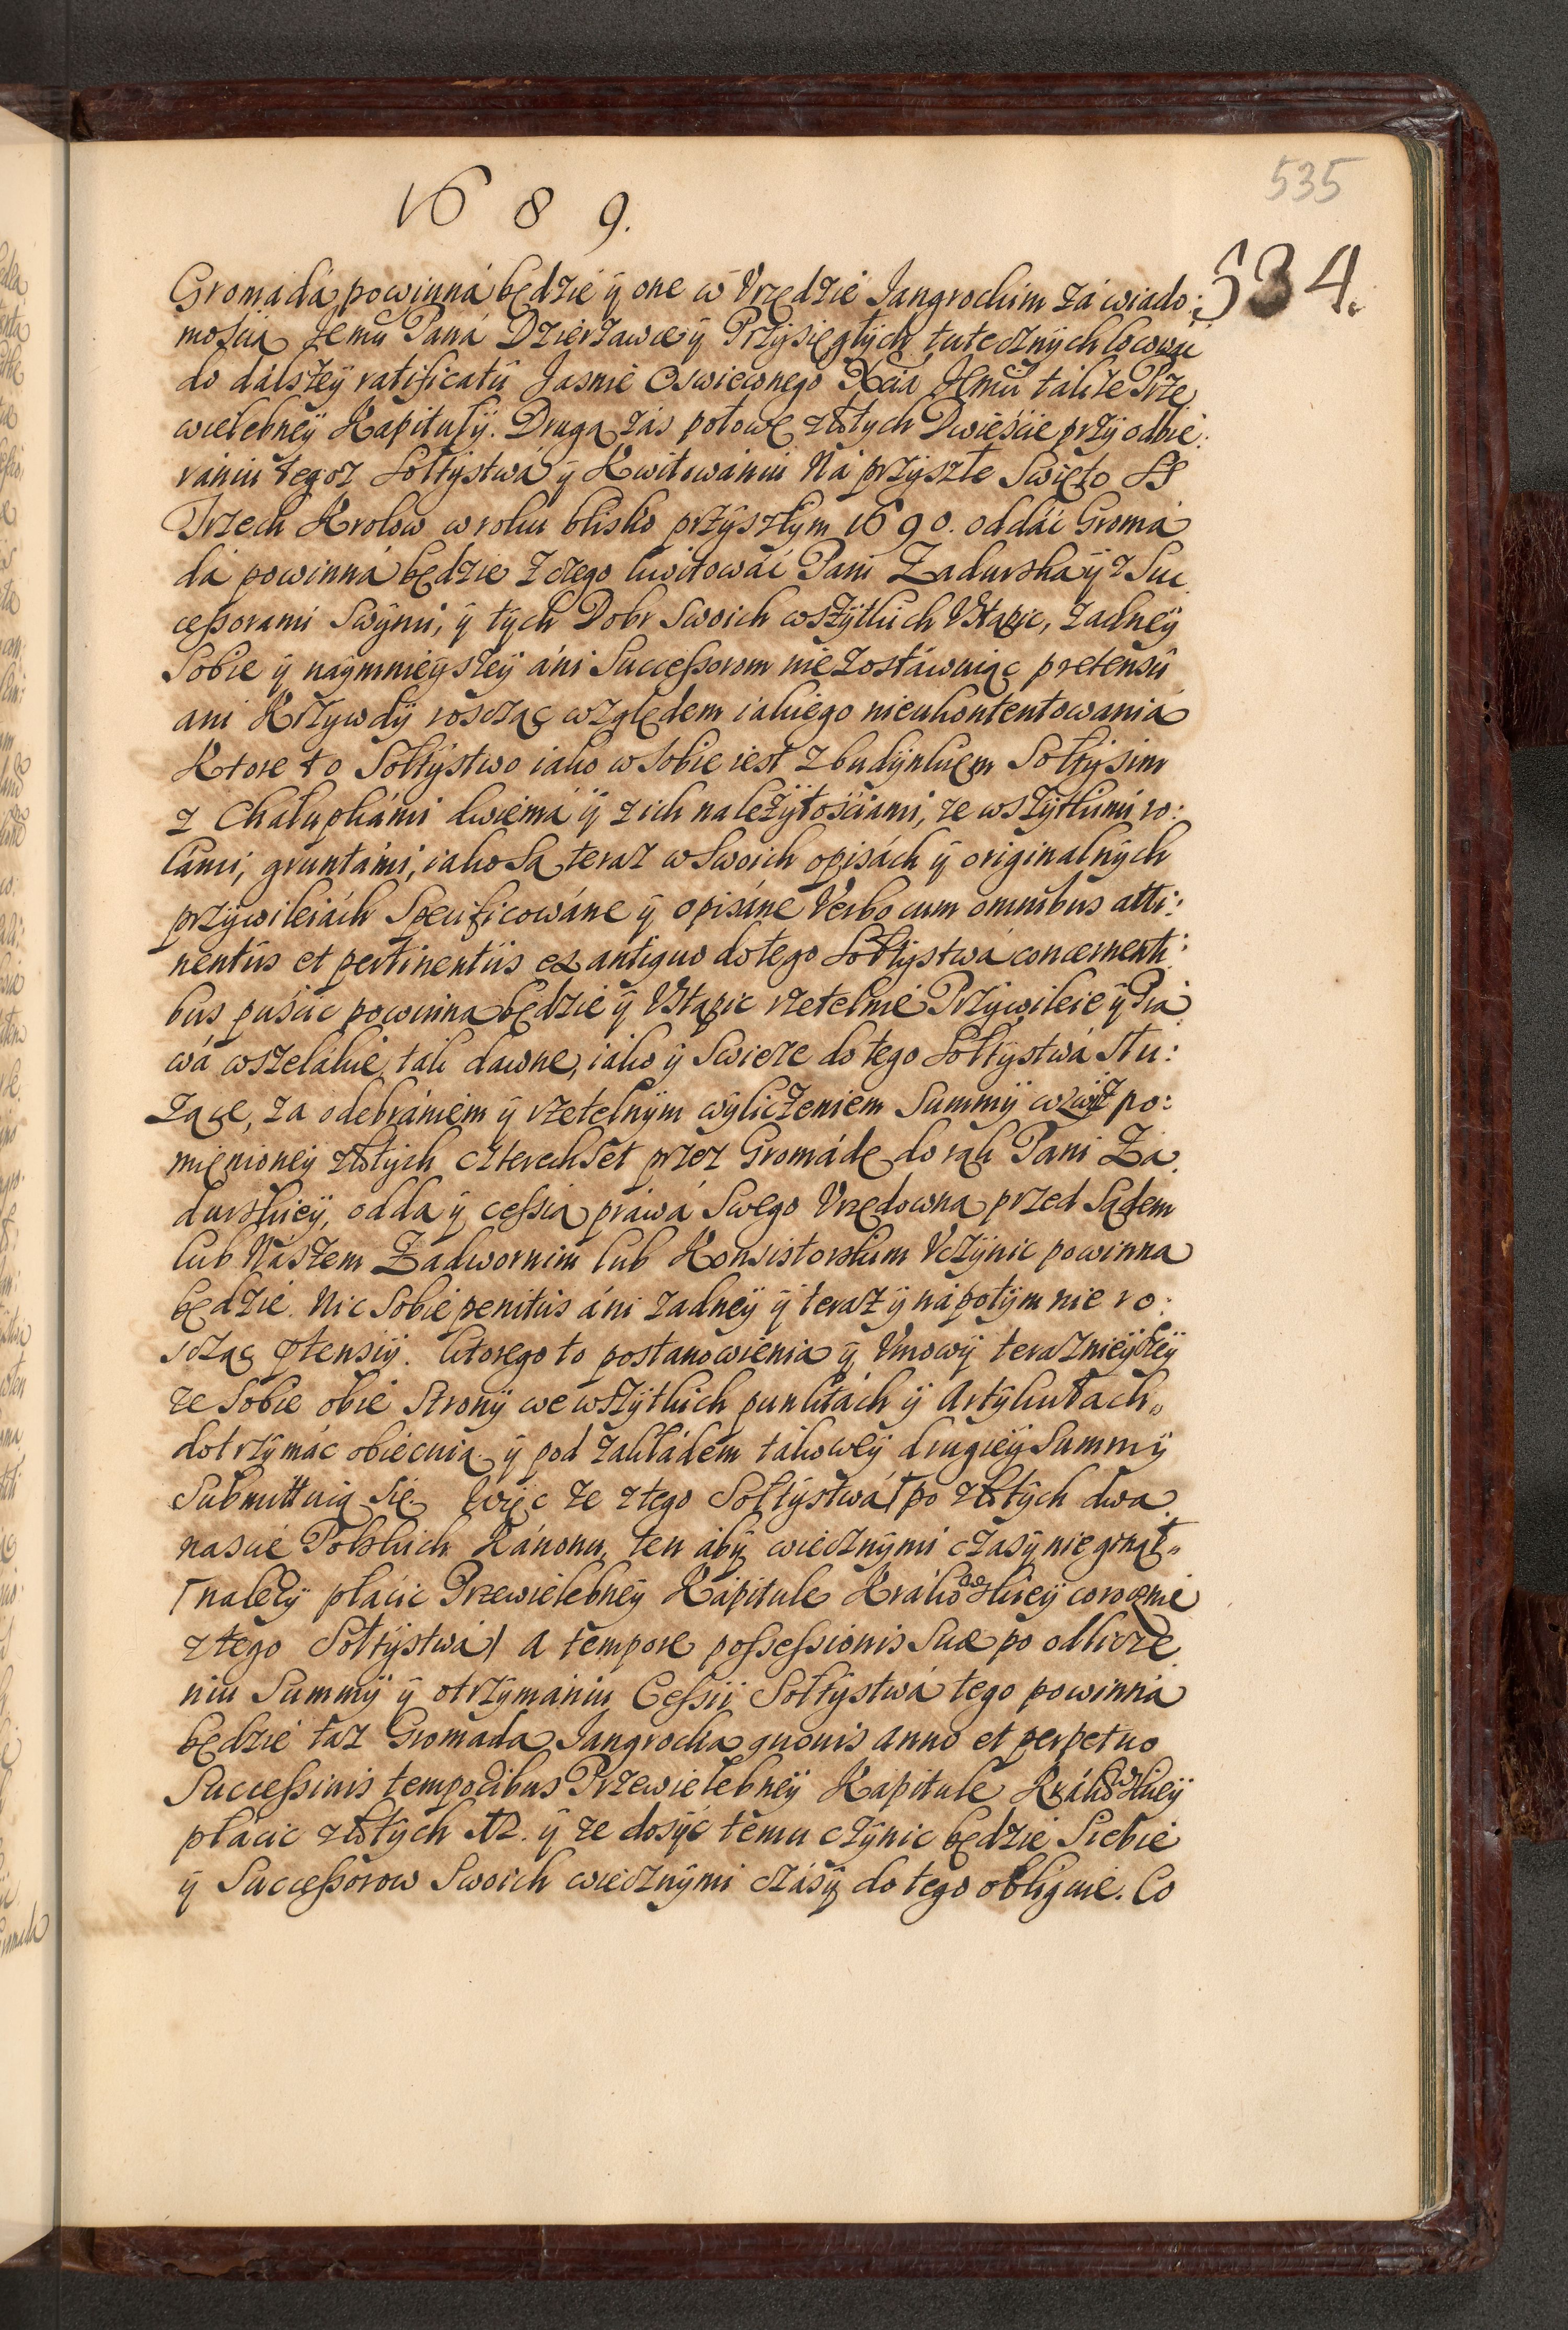 1689.
535
534.
Gromadá powinná będzie ÿ one w Vrzędzie Jangrockim zá wiado:
moscią Jemu Paná Dzierzawcę ÿ Przÿsięgłÿch tutecznÿch locowac
do dalszeÿ ratificatÿ Jasnie Oswieconego Xcia Jemu takze Prze
wielebneÿ Kapitułÿ. Drugą zás połowę złotÿch Dwieście przÿ odbie:
raniu tegoz Sołtÿstwá ÿ Kwitowániu Ná przÿszłe Swięto SS
Trzech Krolow w roku blisko przÿszłÿm 1690. oddáć Gromá
dá powinná będzie z czego kwitowáć Pani Zadurska ÿ z Suc
cessorami Swÿmi, ÿ tÿch Dobr Swoich wszÿtkich Vstąpic, zadneÿ
Sobie ÿ naÿmnieÿszeÿ áni Successorom nie zostáwuiąc pretensii
ani Krzÿwdÿ roscząc względem iakiego nieukontentowania
Ktore to Sołtÿstwo iako w Sobie iest z budÿnkiem Sołtÿsim
z Chałupkámi dwiemá ÿ z ich nalezÿtościami, ze wszÿtkimi ro:
lami, gruntámi, iako Są teraz w Swoich opisách ÿ originalnÿch
przÿwileiách Specificowáne ÿ opisáne Verbo cum omnibus atti:
nentiis et pertinentiis ex antiquo do tego Sołtÿstwá concernenti:
bus puscic powinna będzie ÿ Vstąpic rzetelnie Przÿwileie ÿ Prá
wá wszelakie, tak dawne, iako ÿ Swieze do tego Sołtÿstwá słu:
zące, za odebrániem ÿ rzetelnÿm wÿliczeniem Summÿ wzwÿz po:
mienioneÿ złotÿch czterechset przez Gromáde do rąk Pani Zá
durskieÿ, odda ÿ cessią práwá Swego Vrzędowną przed Sądem
lub Nászem Zadwornim lub Konsistorskim Vczÿnic powinna
będzie. Nic Sobie penitus áni zadneÿ ÿ teraz ÿ nápotÿm nie ro:
scząc ptensiÿ. Ktorego to postanowienia ÿ Vmowÿ teraznieÿszeÿ
ze Sobie obie Stronÿ we wszÿtkich punktách ÿ Artÿkułach„
dotrzÿmác obiecuią ÿ pod zakładem takoweÿ drugieÿ Summÿ
Submittuią się. Więc ze z tego Sołtÿstwá/ po złotÿch dwa
nascie Polskich Kánonu, ten abÿ wiecznÿmi czasÿ nie ginął„
/nalezÿ płácic Przewielebneÿ Kápitule Krákowskieÿ corocznie
z tego Sołtÿstwá/ a tempore possessionis Suæ po odlicze
niu Summÿ ÿ otrzÿmániu Cessii Sołtÿstwá tego powinná
będzie taz Gromada Jangrocka quouis anno et perpetuo
Successiuis temporibus Przewielebneÿ Kapitule Krákowskieÿ
płácic złotÿch N12. ÿ ze dosÿć temu czÿnic będzie Siebie
ÿ Successorow Swoich wiecznÿmi czásÿ do tego obliguie. Co